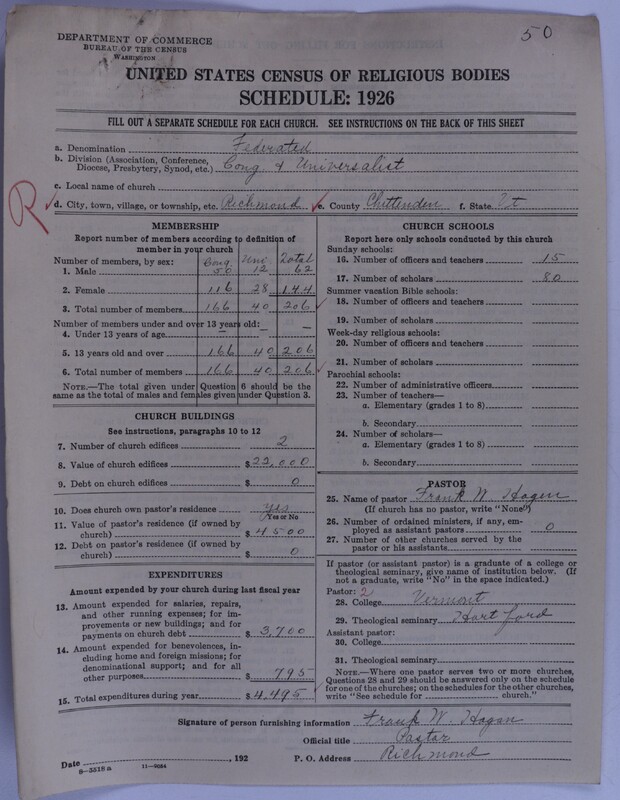 50
DEPARTMENT OF COMMERCE
BUREAU OF THE CENSUS
WASHINGTON
UNITED STATES CENSUS OF RELIGIOUS BODIES
SCHEDULE: 1926
FILL OUT A SEPARATE SCHEDULE FOR EACH CHURCH. SEE INSTRUCTIONS ON THE BACK OF THIS SHEET
a. Denomination Federated
b. Division (Association, Conference, Diocese, Presbytery, Synod, etc.) Cong & Universalist
c. Local name of church
R
d. City, town, village, or township, etc. Richmond e. County Chittenden f. State Vt
MEMBERSHIP
Report number of members according to definition of
member in your church
Number of members, by sex: Cong. Uni. Total
1. Male 50 12 62
2. Female 116 28 144
3. Total number of members 166 40 206
Number of members under and over 13 years old:
4. Under 13 years of age — — —
5. 13 years old and over 166 40 206
6. Total number of members 166 40 206
NOTE.—The total given under Question 6 should be the
same as the total of males and females given under Question 3.
CHURCH BUILDINGS
See instructions, paragraphs 10 to 12
7. Number of church edifices 2
8. Value of church edifices $ 22,000
9. Debt on church edifices $ 0
10. Does church own pastor's residence Yes
Yes or No
11. Value of pastor's residence (if owned by
church) $ 4500
12. Debt on pastor's residence (if owned by
church) $ 0
EXPENDITURES
Amount expended by your church during last fiscal year
13. Amount expended for salaries, repairs,
and other running expenses; for im-
provements or new buildings; and for
payments on church debt $ 3,700
14. Amount expended for benevolences, in-
cluding home and foreign missions; for
denominational support; and for all
other purposes $ 795
15. Total expenditures during year $ 4,495
CHURCH SCHOOLS
Report here only schools conducted by this church
Sunday schools:
16. Number of officers and teachers 15
17. Number of scholars 80
Summer vacation Bible schools:
18. Number of officers and teachers
19. Number of scholars
Week-day religious schools:
20. Number of officers and teachers
21. Number of scholars
Parochial schools:
22. Number of administrative officers
23. Number of teachers—
a. Elementary (grades 1 to 8)
b. Secondary
24. Number of scholars—
a. Elementary (grades 1 to 8)
b. Secondary
PASTOR
25. Name of pastor Frank W. Hogan
(If church has no pastor, write "None")
26. Number of ordained ministers, if any, em-
ployed as assistant pastors 0
27. Number of other churches served by the
pastor or his assistants
If pastor (or assistant pastor) is a graduate of a college or
theological seminary, give name of institution below. (If
not a graduate, write "No" in the space indicated.)
Pastor: 2
28. College Vermont
29. Theological seminary Hartford
Assistant pastor:
30. College
31. Theological seminary
NOTE.—Where one pastor serves two or more churches,
Questions 28 and 29 should be answered only on the schedule
for one of the churches; on the schedules for the other churches,
write "See schedule for church."
Signature of person furnishing information Frank W. Hogan
Official title Pastor
Date , 192 P. O. Address Richmond
8—5518 a 11—9084